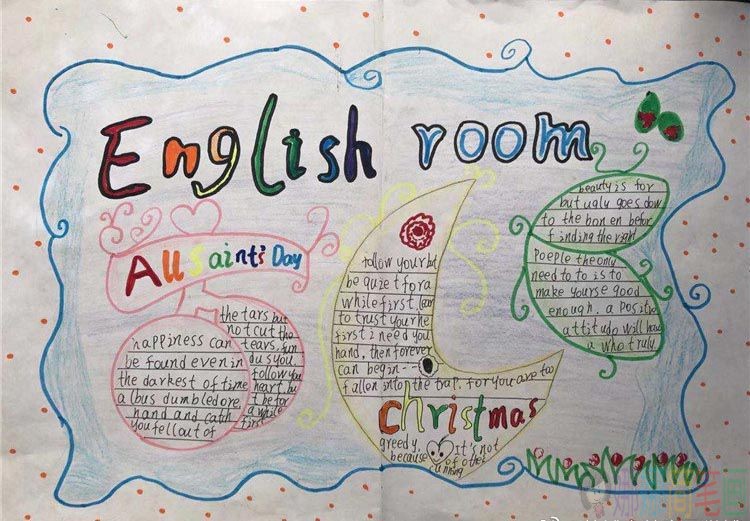 English room
All Saint's Day
happiness can
be found even in
the darkest of time
albus dumbledore
hand and cath
you fell out of
the tars but
not cut the
tears, fun
du s you
follow you
heart, but
t be for
a while
first
follow your but
be quiet for a
while first lear
to trust your he
first i need you
hand, then forever
can begin-
fallen into the trap. for you are too
christmas
greedy. It's not
because of other
cunning
beauty is for
but ugly goes dow
to the bon en befor
finding the right
Poeple the only
need to to is to
make yourse good
enough. a Positiv
attitudo will hav
a who truly